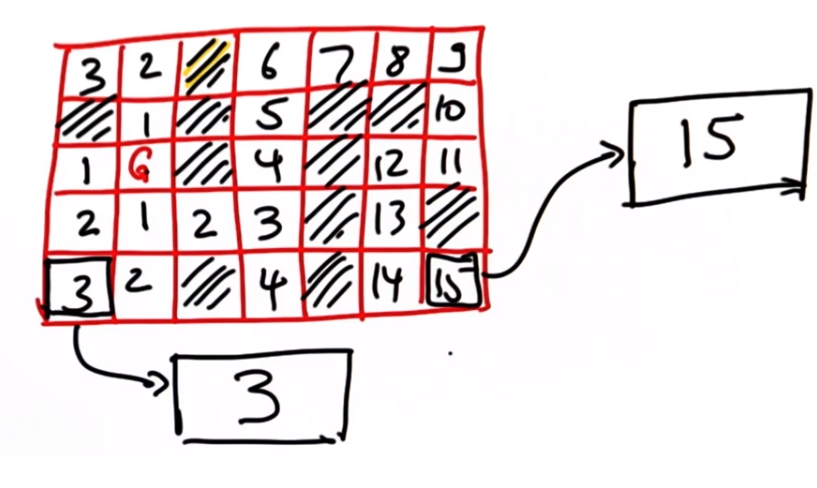 3 2 6 7 8 9
1 5 10
1 G 4 12 11
2 1 2 3 13
3 2 4 14 15
15
3